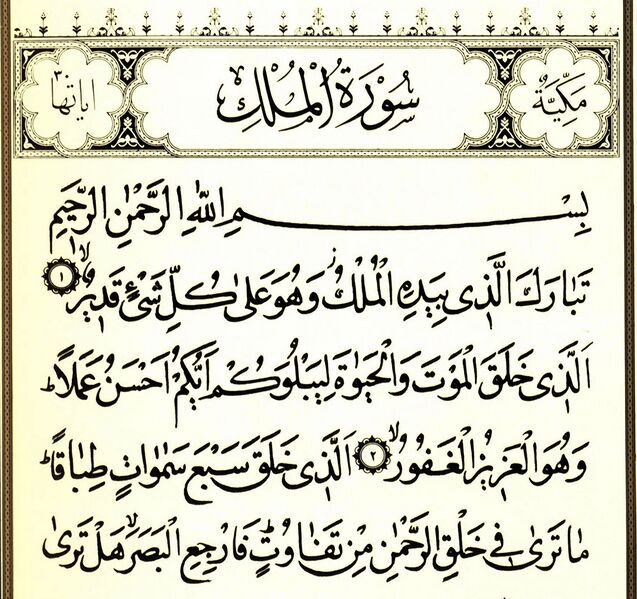 مَكِّيَّةٌ سُورَةُ الْمُلْكِ اياتها ٣٠
بِسْمِ اللّٰهِ الرَّحْمٰنِ الرَّحِيمِ
تَبَارَكَ الَّذِى بِيَدِهِ الْمُلْكُ ز وَهُوَ عَلٰى كُلِّ شَىْءٍ قَدِيرٌ لا ١
اَلَّذِى خَلَقَ الْمَوْتَ وَالْحَيٰوةَ لِيَبْلُوَكُمْ اَيُّكُمْ اَحْسَنُ عَمَلًا ط
وَهُوَ الْعَزِيزُ الْغَفُورُ لا ٢ اَلَّذِى خَلَقَ سَبْعَ سَمٰوَاتٍ طِبَاقًا ط
مَا تَرٰى فِى خَلْقِ الرَّحْمٰنِ مِنْ تَفَاوُتٍ ط فَارْجِعِ الْبَصَرَ لا هَلْ تَرٰى